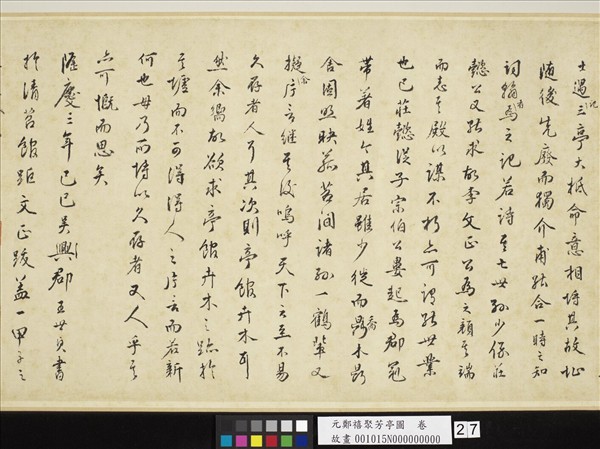 三亭大抵命意相埒其故址
随後先廢而獨介甫能合一時之知
詞翰者為之記若詩至七世孫少保莊
懿公又能求故李文正公為之顏其端
而志其殿以謀不朽亦可謂能世業
也已莊懿從子宗伯公婁起為郡冠
帶著姓今其居雖少徙而喬木
舍園照映菰苕間諸孫一鶴輩又
片言繼其後嗚呼天下之至不易
久存者人耳其次則亭館卉木耳
然余嚮欲求亭館卉木之跡於
其墟而不可得得人之片言而若新
何也毋乃所恃以久存者又人乎哉
亦可慨而思矣
隆慶三年己巳吳興郡王世貞書
於清苕館距文正跋蓋一甲子之
元鄭禧聚芳亭圖　卷
故畫 001015N000000000
27